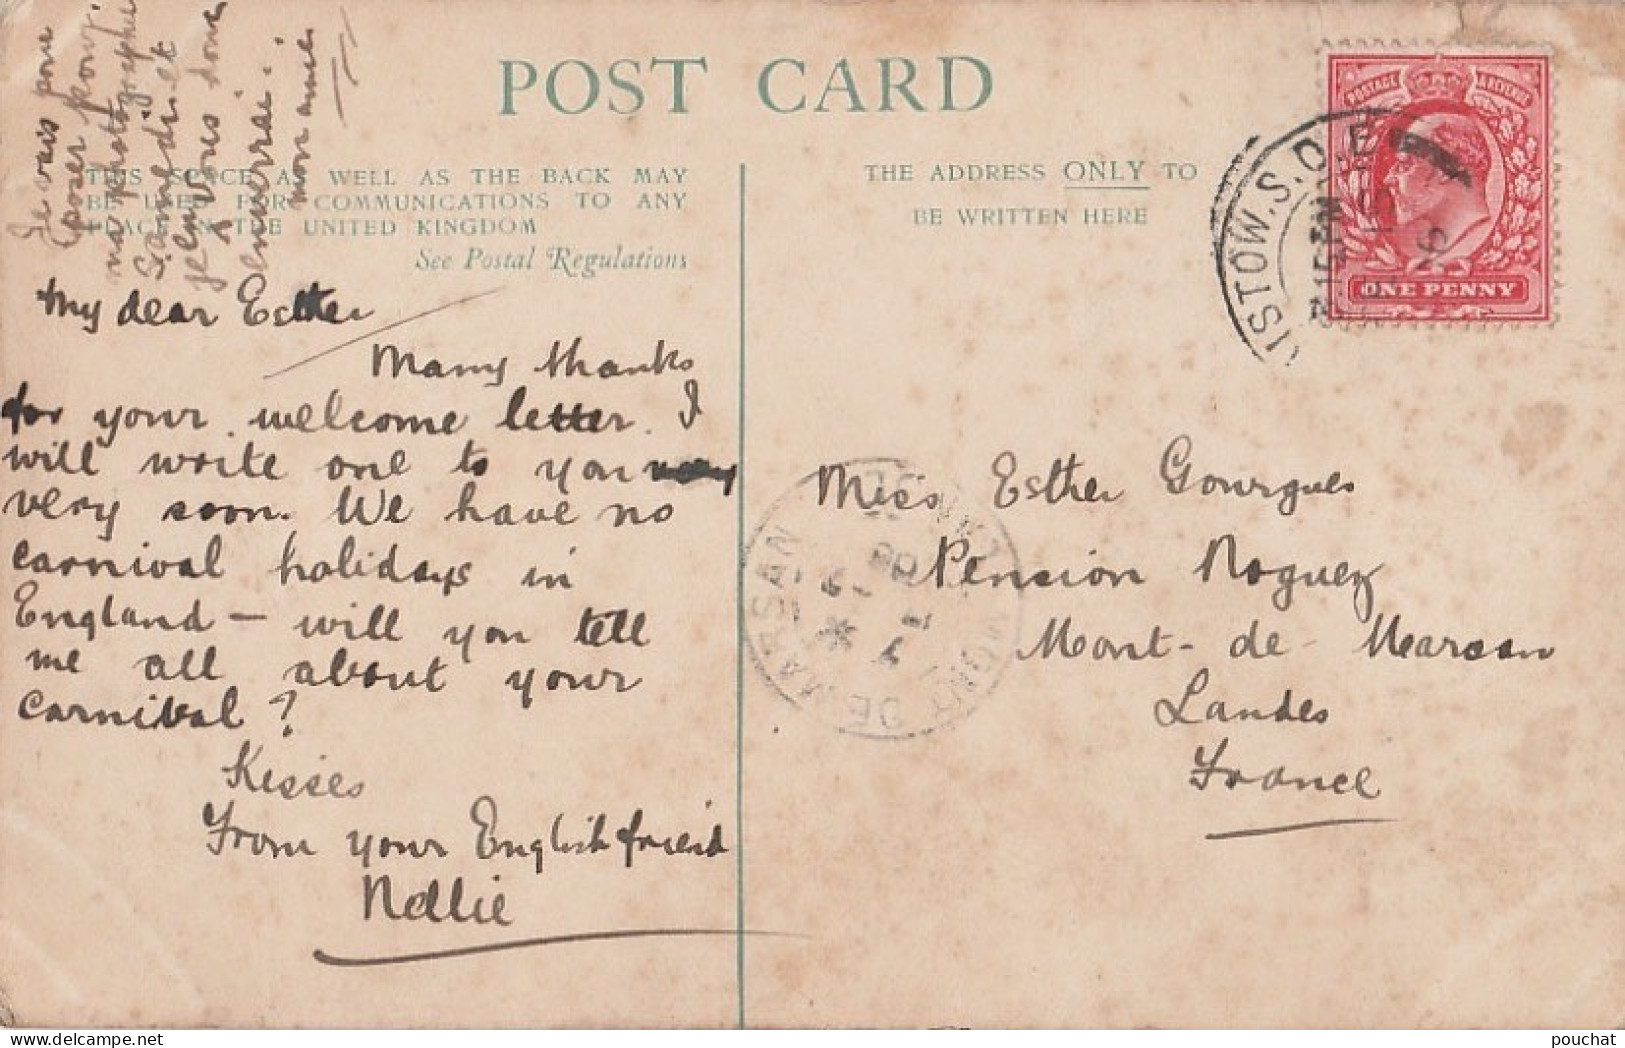 Je vais
poser pour
ma photographie
Samedi et
je vous
enverrai.
mon amie
POST CARD
THIS SPACE AS WELL AS THE BACK MAY
BE USED FOR COMMUNICATIONS TO ANY
PLACE IN THE UNITED KINGDOM
See Postal Regulations
THE ADDRESS ONLY TO
BE WRITTEN HERE
POSTAGE & REVENUE
ONE PENNY
ISTOW.S.O.
My dear Esther
Many thanks
for your welcome letter. I
will write one to you
very soon. We have no
carnival holidays in
England — will you tell
me all about your
carnival?
Kisses
From your English friend
Nellie
Miss Esther Gourgues
Pension Noguez
Mont-de-Marsan
Landes
France
MONT DE MARSAN
pouchat